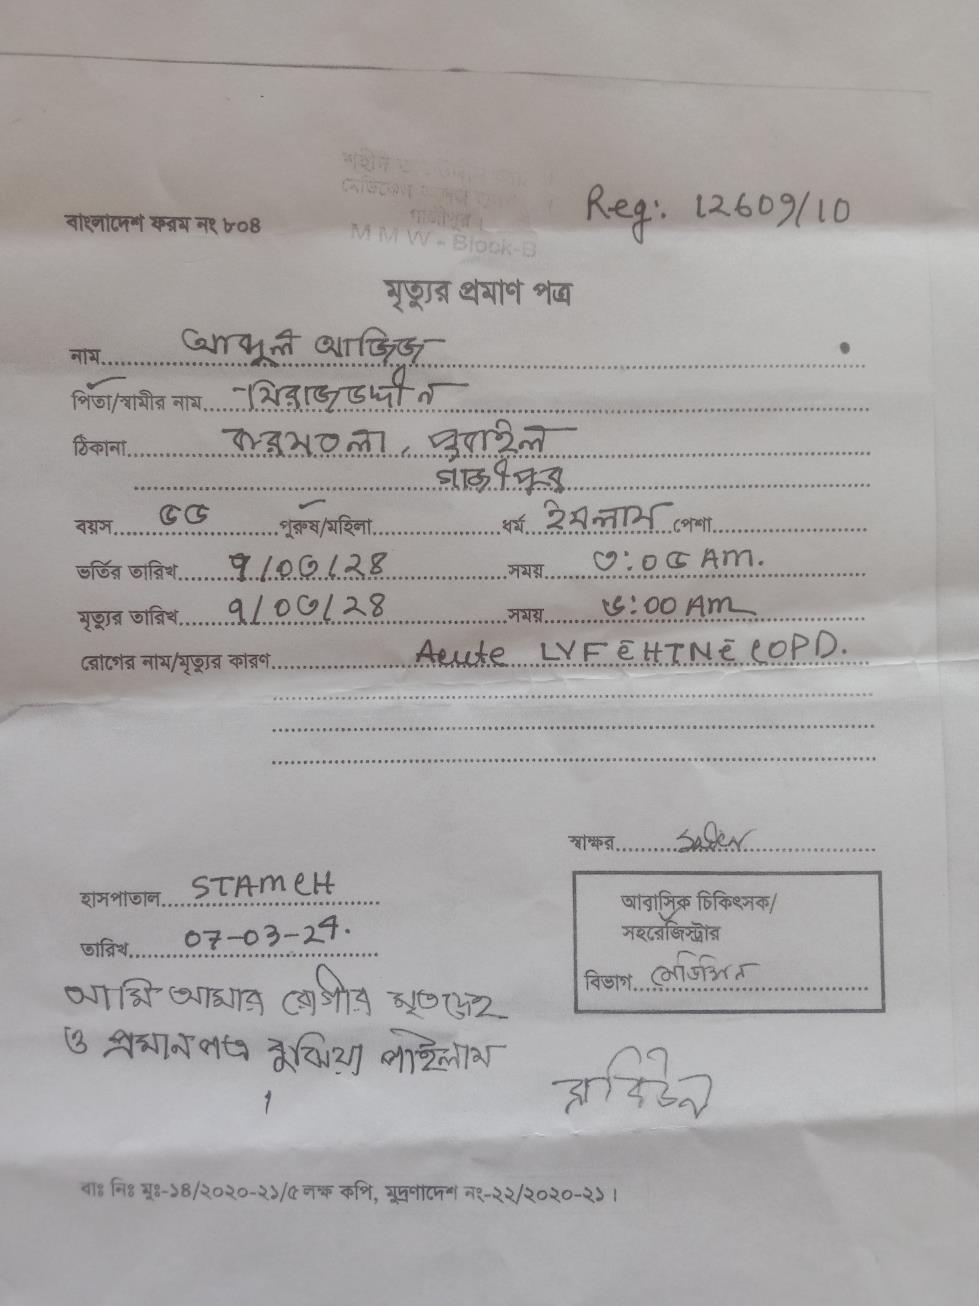 শহীদ
মেডিকেল কলেজ
গাজীপুর।
MMW-Block-B
Reg: 12609/10
বাংলাদেশ ফরম নং ৮০৪
মৃত্যুর প্রমাণ পত্র
নাম আব্দুল আজিজ
পিতা/স্বামীর নাম মিরাজউদ্দীন
ঠিকানা করমতলা, পুবাইল
গাজীপুর
বয়স ৫৫ পুরুষ/মহিলা ধর্ম ইসলাম পেশা
ভর্তির তারিখ ৭/০৩/২৪ সময় ৩:০৫ AM.
মৃত্যুর তারিখ ৭/০৩/২৪ সময় ৬:০০ AM
রোগের নাম/মৃত্যুর কারণ Acute LVF c̄ HTN c̄ COPD.
স্বাক্ষর
হাসপাতাল STAMCH
তারিখ 07-03-24.
আবাসিক চিকিৎসক/
সহরেজিস্ট্রার
বিভাগ মেডিসিন
আমি আমার রোগীর মৃতদেহ
ও প্রমানপত্র বুঝিয়া পাইলাম
।
বাঃ নিঃ মুঃ-১৪/২০২০-২১/৫ লক্ষ কপি, মুদ্রণাদেশ নং-২২/২০২০-২১।